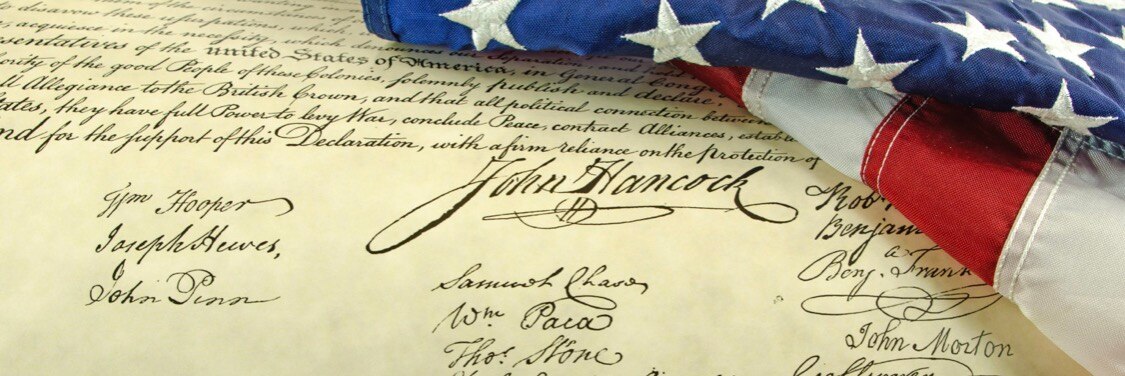 avow these usurpations, which
acquiesce in the necessity, which denounces our Separation, and
sentatives of the united States of America, in General Cong
ority of the good People of these Colonies, solemnly publish and declare,
Allegiance to the British Crown, and that all political connection between
tates, they have full Power to levy War, conclude Peace, contract Alliances, establ
nd for the support of this Declaration, with a firm reliance on the protection of
John Hancock
Wm Hooper
Joseph Hewes,
John Penn
Samuel Chase
Wm. Paca
Thos. Stone
Rob
Benjam
Benj. Frank
John Morton